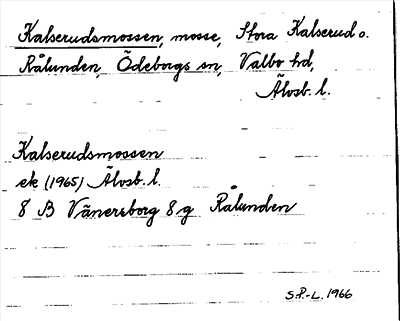 Kalserudsmossen, mosse, Stora Kalserud o.
Rålunden, Ödeborgs sn, Valbo hd,
Älvsb. l.
Kalserudsmossen
ek (1965) Älvsb. l.
8 B Vänersborg 8 g Rålunden
S.P.-L. 1966